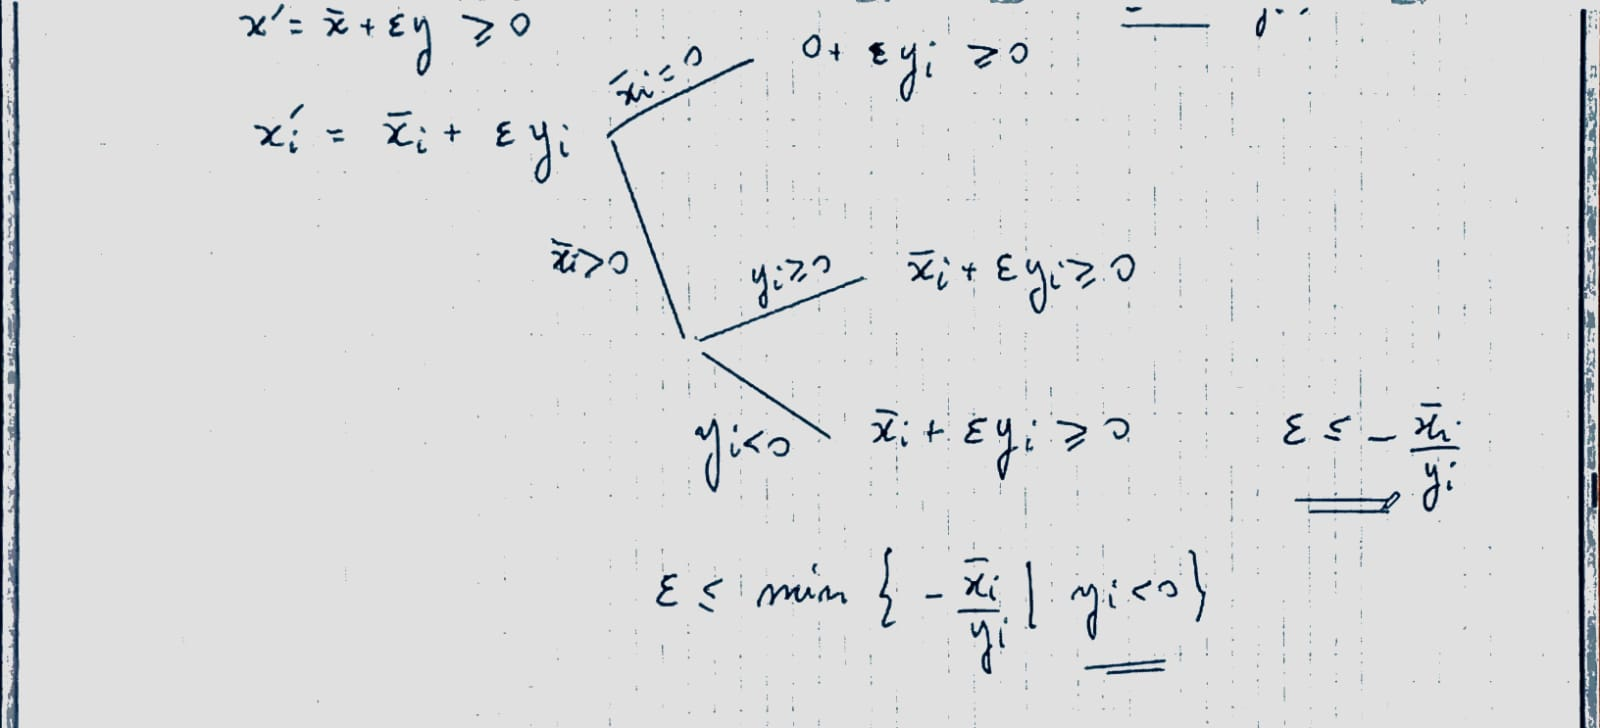 x' = x̄ + εy ≥ 0
x̄i = 0
0 + εyi ≥ 0
xi' = x̄i + εyi
x̄i > 0
yi ≥ 0
x̄i + εyi ≥ 0
yi < 0
x̄i + εyi ≥ 0
ε ≤ - x̄i/yi
ε ≤ min { - x̄i/yi | yi < 0 }